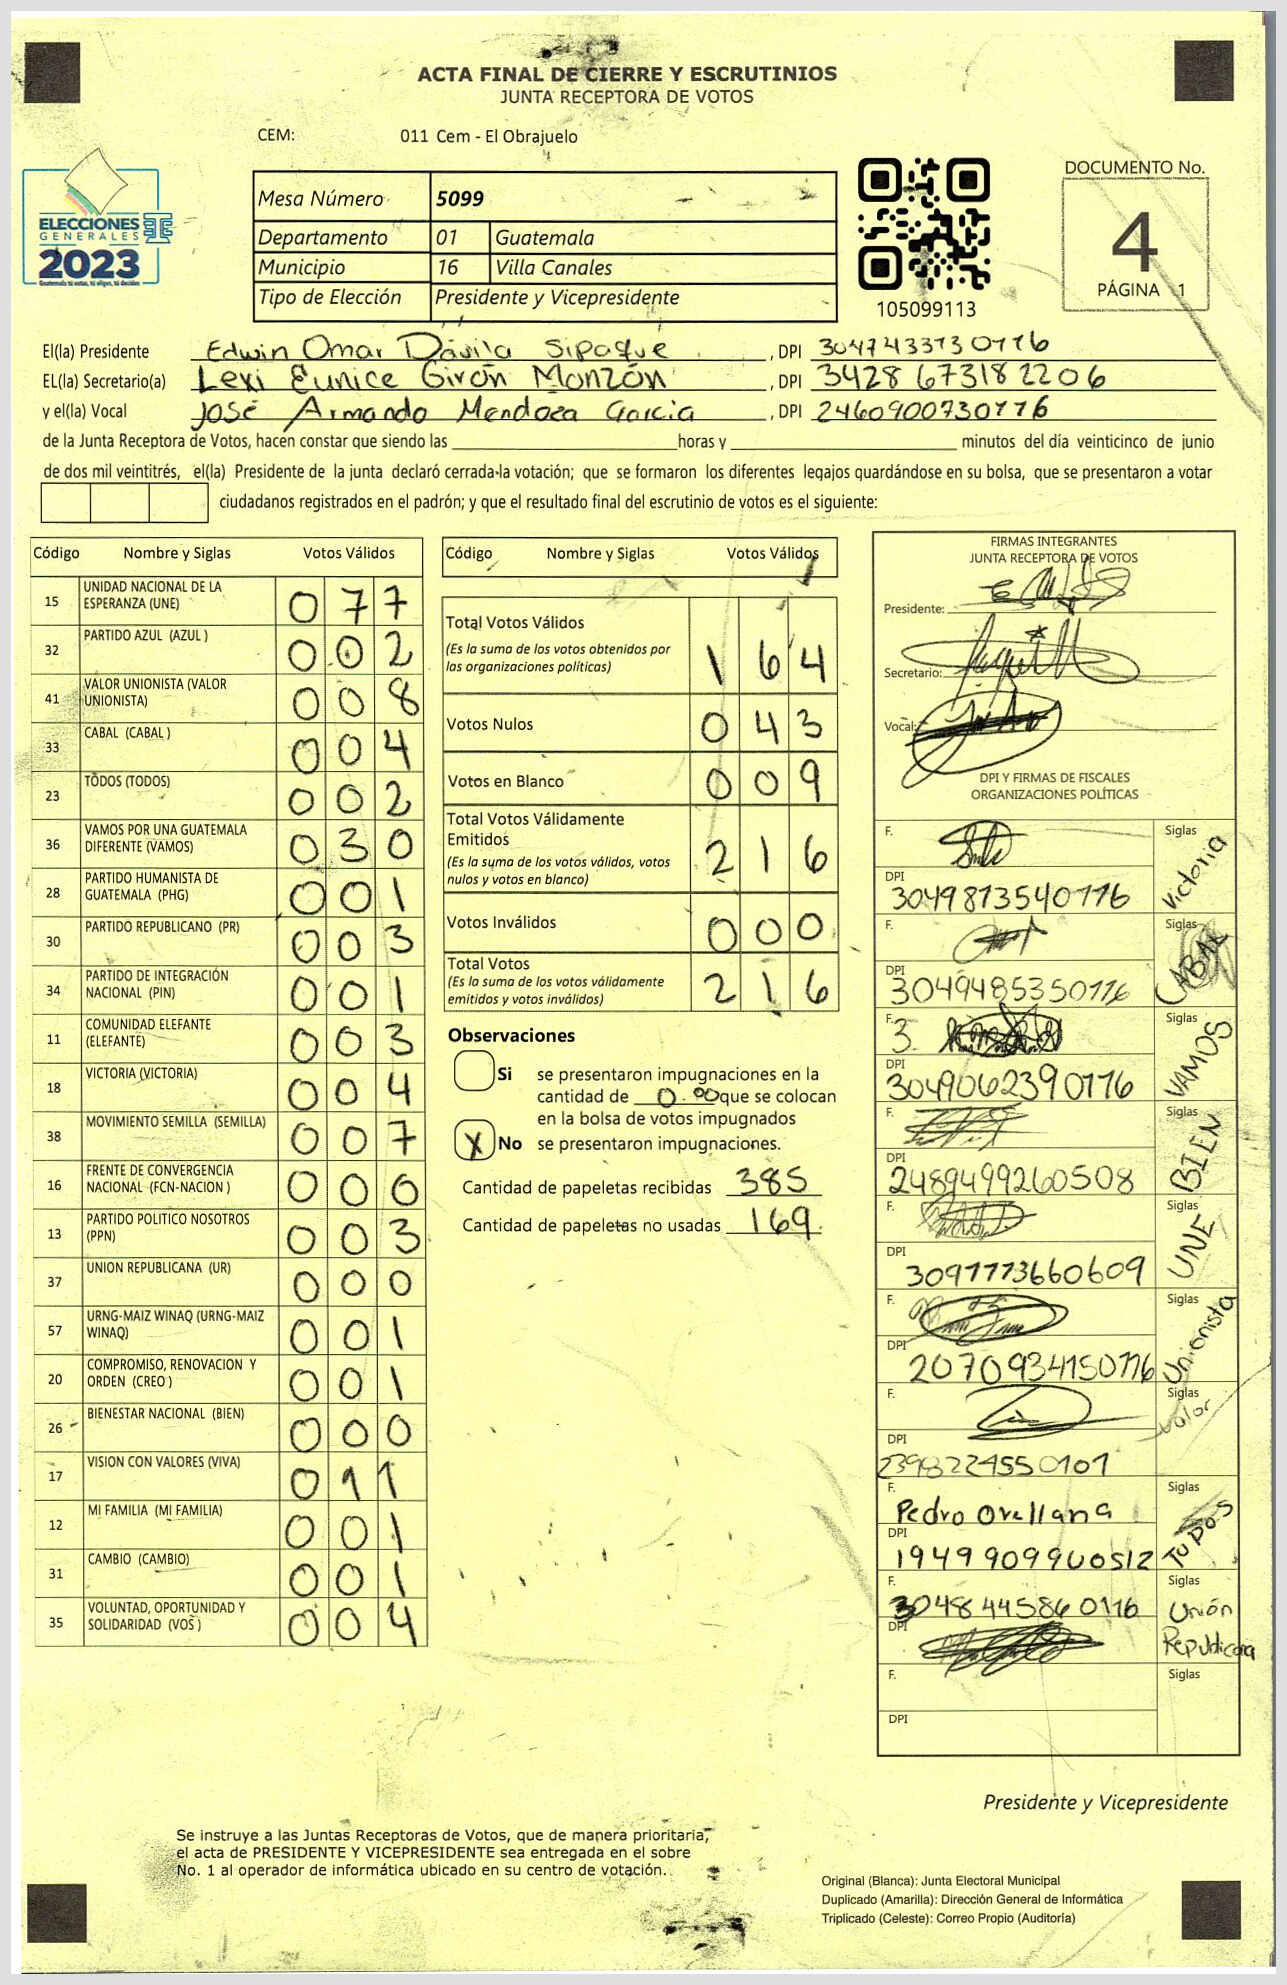 ACTA FINAL DE CIERRE Y ESCRUTINIOS
JUNTA RECEPTORA DE VOTOS
CEM: 011 Cem - El Obrajuelo
ELECCIONES
GENERALES
2023
Guatemala tú votas, tú eliges, tú decides
Mesa Número 5099
Departamento 01 Guatemala
Municipio 16 Villa Canales
Tipo de Elección Presidente y Vicepresidente
105099113
DOCUMENTO No.
4
PÁGINA 1
El(la) Presidente Edwin Omar Dávila Sipaque, DPI 3047433730116
EL(la) Secretario(a) Lexi Eunice Girón Monzón, DPI 3428673182206
y el(la) Vocal José Armando Mendoza Garcia, DPI 2460900730116
de la Junta Receptora de Votos, hacen constar que siendo las horas y minutos del día veinticinco de junio
de dos mil veintitrés, el(la) Presidente de la junta declaró cerrada la votación; que se formaron los diferentes legajos guardándose en su bolsa, que se presentaron a votar
ciudadanos registrados en el padrón; y que el resultado final del escrutinio de votos es el siguiente:
Código Nombre y Siglas Votos Válidos
15 UNIDAD NACIONAL DE LA ESPERANZA (UNE) 077
32 PARTIDO AZUL (AZUL ) 002
41 VALOR UNIONISTA (VALOR UNIONISTA) 008
33 CABAL (CABAL ) 004
23 TODOS (TODOS) 002
36 VAMOS POR UNA GUATEMALA DIFERENTE (VAMOS) 030
28 PARTIDO HUMANISTA DE GUATEMALA (PHG) 001
30 PARTIDO REPUBLICANO (PR) 003
34 PARTIDO DE INTEGRACIÓN NACIONAL (PIN) 001
11 COMUNIDAD ELEFANTE (ELEFANTE) 003
18 VICTORIA (VICTORIA) 004
38 MOVIMIENTO SEMILLA (SEMILLA) 007
16 FRENTE DE CONVERGENCIA NACIONAL (FCN-NACION ) 000
13 PARTIDO POLITICO NOSOTROS (PPN) 003
37 UNION REPUBLICANA (UR) 000
57 URNG-MAIZ WINAQ (URNG-MAIZ WINAQ) 001
20 COMPROMISO, RENOVACION Y ORDEN (CREO ) 001
26 BIENESTAR NACIONAL (BIEN) 000
17 VISION CON VALORES (VIVA) 011
12 MI FAMILIA (MI FAMILIA) 001
31 CAMBIO (CAMBIO) 001
35 VOLUNTAD, OPORTUNIDAD Y SOLIDARIDAD (VOS ) 004
Código Nombre y Siglas Votos Válidos
Total Votos Válidos 164
(Es la suma de los votos obtenidos por
las organizaciones políticas)
Votos Nulos 043
Votos en Blanco 009
Total Votos Válidamente
Emitidos 216
(Es la suma de los votos válidos, votos
nulos y votos en blanco)
Votos Inválidos 000
Total Votos 216
(Es la suma de los votos válidamente
emitidos y votos inválidos)
Observaciones
Si se presentaron impugnaciones en la
cantidad de 0.00 que se colocan
en la bolsa de votos impugnados
X No se presentaron impugnaciones.
Cantidad de papeletas recibidas 385
Cantidad de papeletas no usadas 169
FIRMAS INTEGRANTES
JUNTA RECEPTORA DE VOTOS
Presidente:
Secretario:
Vocal:
DPI Y FIRMAS DE FISCALES
ORGANIZACIONES POLÍTICAS
F. Siglas Victoria
DPI 3049873540116
F. Siglas CABAL
DPI 3049485350116
F. 3. Siglas VAMOS
DPI 3049062390116
F. Siglas BIEN
DPI 2489499260508
F. Siglas UNE
DPI 3097773660609
F. Siglas Unionista
DPI 2070934150116
F. Siglas Valor
DPI 2398224550101
F. Pedro Orellana Siglas TODOS
DPI 1949909900512
F. 3048445860116 Siglas Unión Republicana
DPI
F. Siglas
DPI
Presidente y Vicepresidente
Se instruye a las Juntas Receptoras de Votos, que de manera prioritaria,
el acta de PRESIDENTE Y VICEPRESIDENTE sea entregada en el sobre
No. 1 al operador de informática ubicado en su centro de votación.
Original (Blanca): Junta Electoral Municipal
Duplicado (Amarilla): Dirección General de Informática
Triplicado (Celeste): Correo Propio (Auditoría)